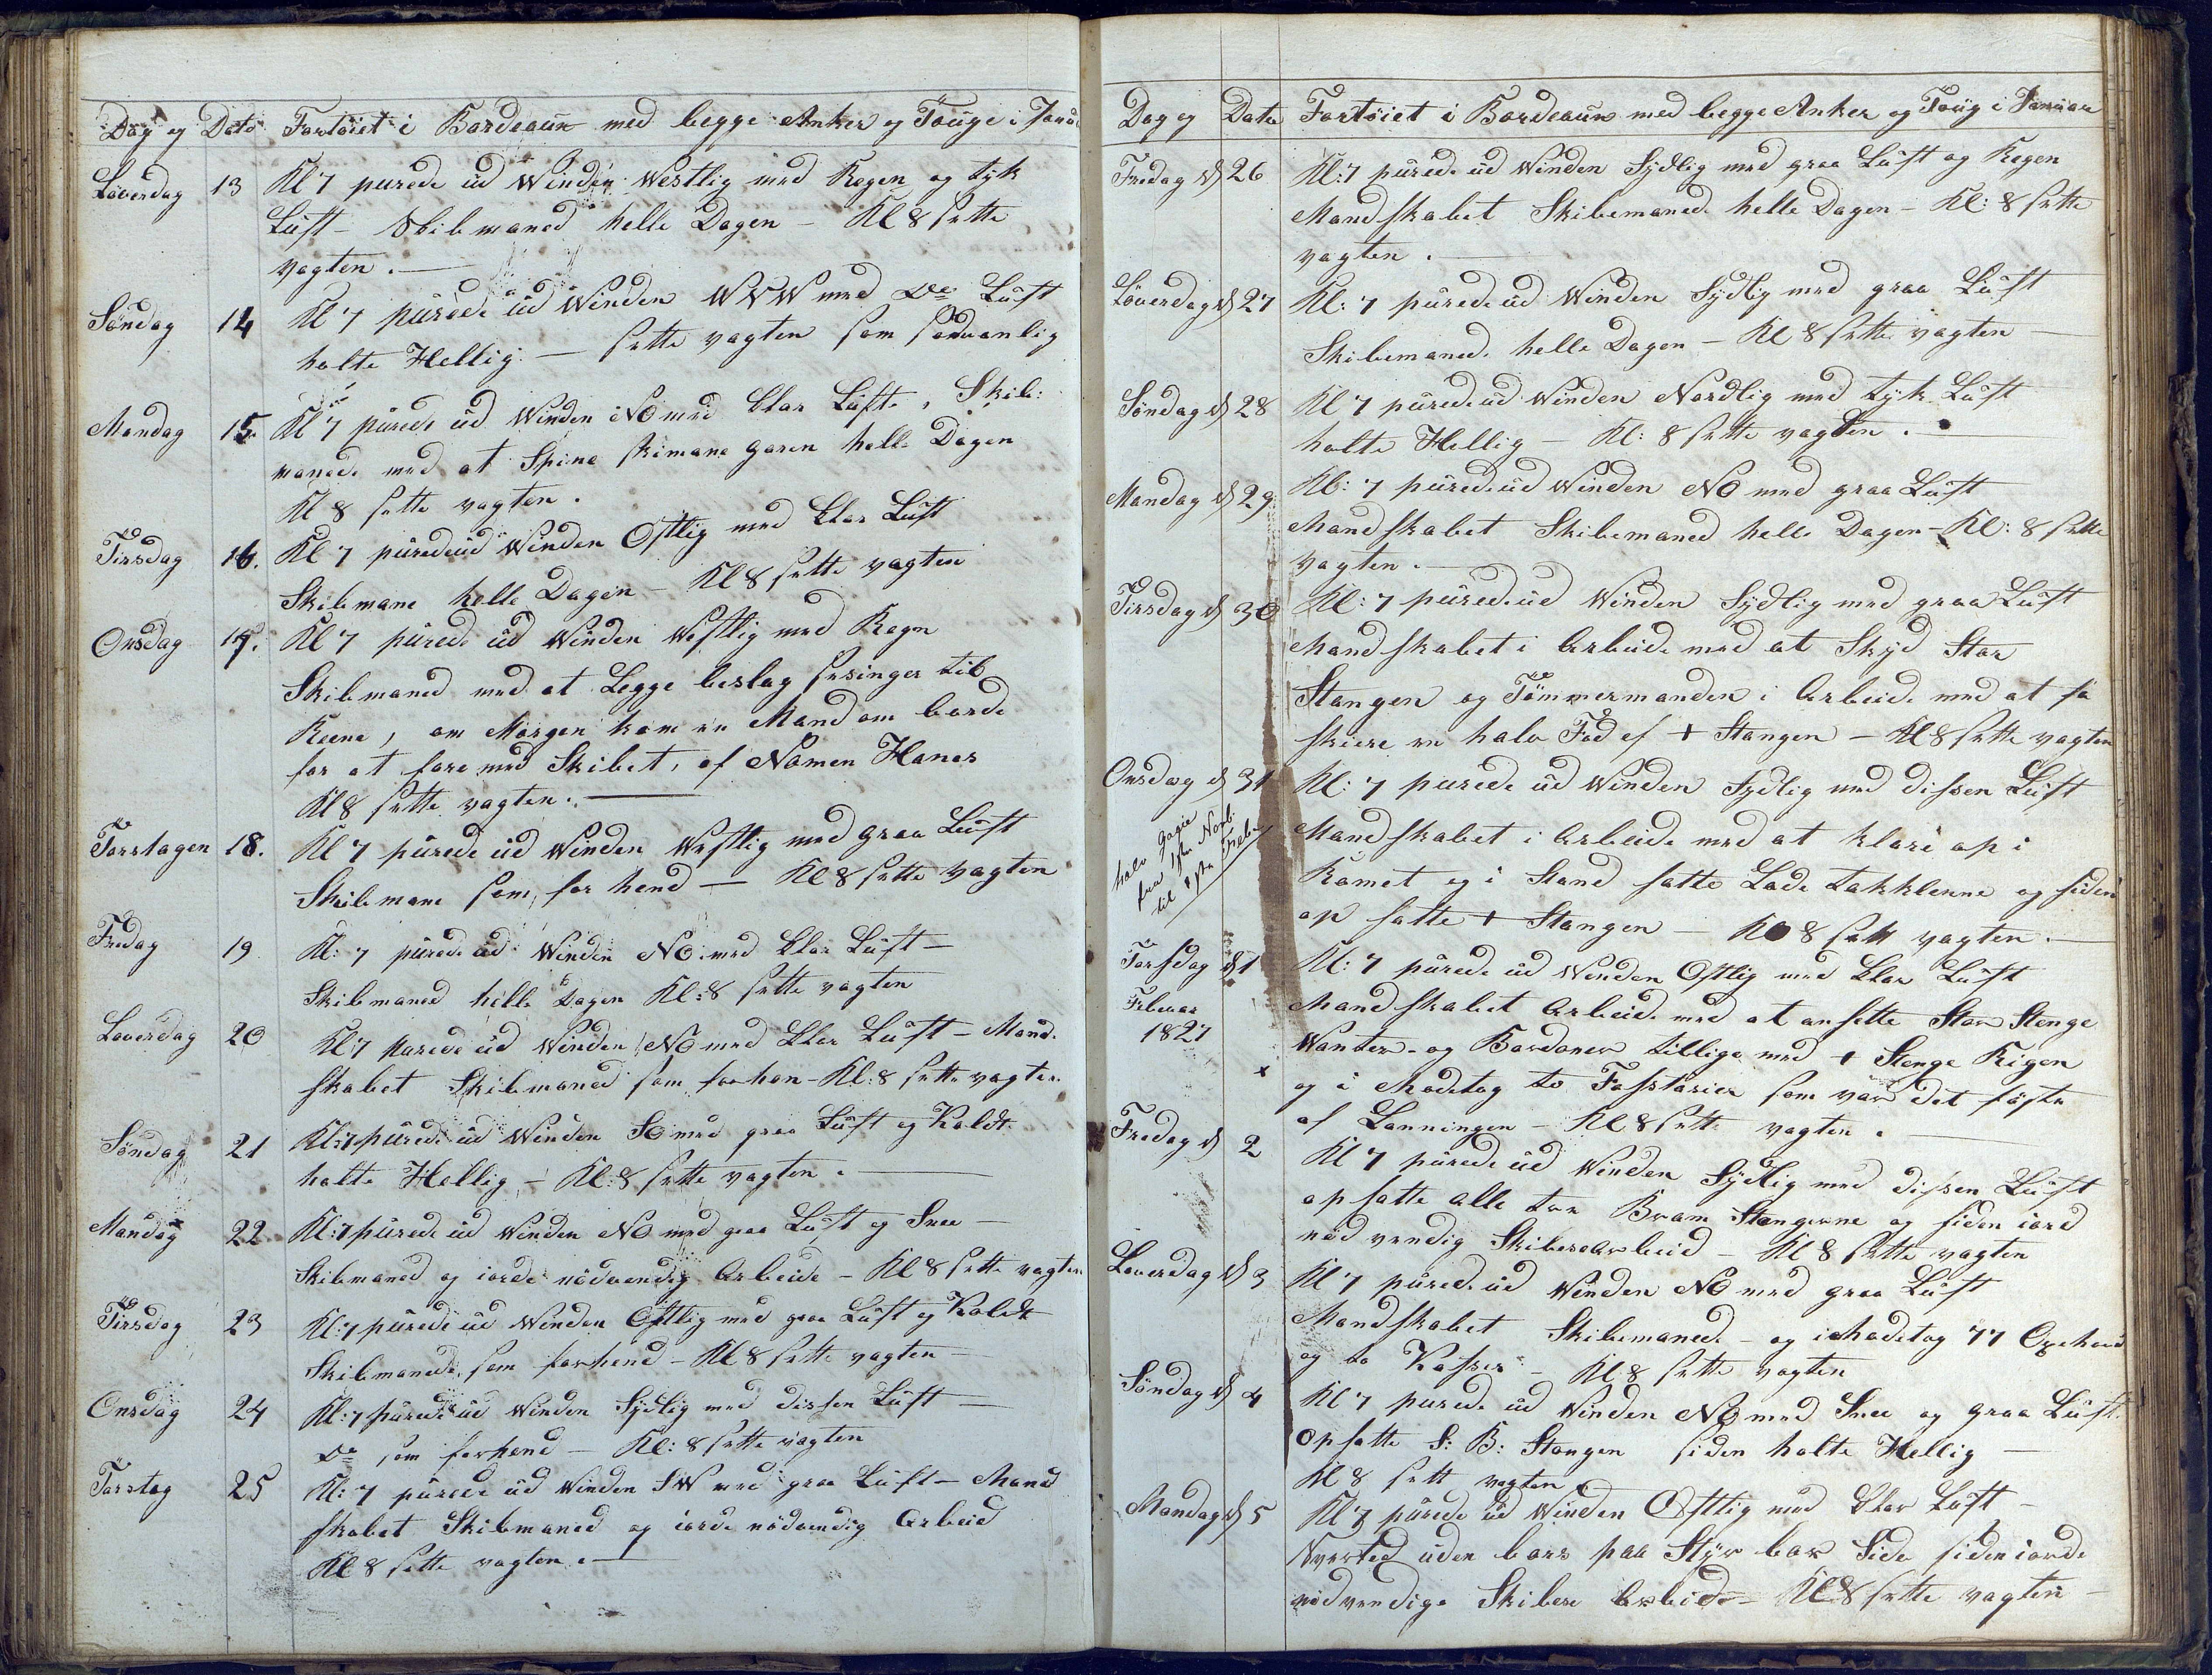 Dag og Dato Fortöiet i Bordeaux med begge Anker og Touge i Janu
Löverdag 13 Kl 7 purede ud Winden Westlig med Regen og tyk
Luft - Skibmaned helle Dagen - Kl 8 sette
vagten. —
Söndag 14 Kl 7 purede ud Winden WNW med Do Luft
holte Hellig. — sette vagten som sedvanlig
Mandag 15. Kl 7 purede ud Winden NO med klar Luft, Skib:
maned. med at Spine skimans garen helle Dagen
Kl 8 sette vagten.
Tirsdag 16. Kl 7 purede ud Winden Ostlig med klar Luft
Skibmane helle Dagen - Kl 8 sette vagten
Onsdag 17. Kl 7 purede ud Winden Westlig med Regn
Skibmaned med at Legge beslag sesinger til
Reerne, om Morgen kom en Mand om borde
for at fare med Skibet, af Namen Hanes
Kl 8 sette vagten. —
Torstagen 18. Kl 7 purede ud Winden Westlig med graa Luft
Skibmane som for hend — Kl 8 sette vagten
Fredag 19 Kl: 7 purede ud Winden NO. med klar Luft —
Skibmaned helle Dagen Kl: 8 sette vagten
Loverdag 20 Kl 7 purede ud Winden NO med klar Luft - Mand.
skabet Skibmaned som forhen - Kl: 8 sette vagten.
Söndag 21 Kl: 7 purede ud Winden SO med graa Luft og Koldt
holte Hellig - Kl: 8 sette vagten. —
Mandag 22 Kl: 7 purede ud Winden NO med graa Luft og Snee —
Skibmaned og iorde nödvendig Arbeide - Kl 8 sette vagten
Tirsdag 23 Kl: 7 purede ud Winden Ostlig med graa Luft og Koldt
Skibmanede, som forhend - Kl 8 sette vagten —
Onsdag 24 Kl: 7 purede ud Winden Sydlig med dissen Luft —
Do som forhend — Kl: 8 sette vagten
Torstag 25 Kl: 7 purede ud Winden SW med graa Luft - Mand
skabet Skibmaned og iorde nödvendig Arbeid
Kl 8 sette vagten. —
Dag og Dato Fortöiet i Bordeaux med begge Anker og Toug i Januar
Fredag d 26 Kl: 7 purede ud Winden Sydlig med graa Luft og Regen
Mandskabet Skibemaned. helle Dagen - Kl: 8 sette
vagten. —
Löverdag d 27 Kl: 7 purede ud Winden Sydlig med graa Luft
Skibemaned. helle Dagen - Kl 8 sette vagten —
Söndag d 28 Kl 7 purede ud Winden Nordlig med tyk Luft
holte Hellig — Kl: 8 sette vagten. —
Mandag d 29 Kl: 7 purede ud Winden NO med graa Luft
Mandskabet Skibemaned helle Dagen - Kl: 8 sette
vagten. —
Tirsdag d 30 Kl: 7 purede ud Winden Sydlig med graa Luft
Mandskabet i Arbeide med at Skyd Stor
Stangen og Tömmermanden i Arbeide med at fa
skiere en halv Fod af + Stangen - Kl 8 sette vagten
Onsdag d 31 Kl: 7 purede ud Winden Sydlig med dissen Luft
halv gagie
fra 1ste Novb:
til 1ste Feb:
Mandskabet i Arbeide med at klare op i
Römet og i Stand satte Lade takklerne og siden
op satte + Stangen — Kl 8 sett vagten. —
Torsdag d 1 Kl: 7 purede ud Winden Ostlig med klar Luft
Februar
1827
Mandskabet Arbeide med at ansette Stor Stenge
Wanter - og Bardoner tillige med + Stenge Rigen
x og i Modetog to som var det förste
af Lanningen - Kl 8 sette vagten. —
Fredag d 2 Kl 7 purede ud Winden Sydlig med dissen Luft
op satte alle tre Bram Stangerne og siden iord
nöd vendig Skibesarbeid - Kl 8 sette vagten
Loverdag d 3 Kl 7 purede ud Winden NO med graa Luft
Mandskabet Skibemaned. - og i Modetog 77 Oxehoud
og to Kasser - Kl 8 sette vagten
Söndag d 4 Kl 7 purede ud Winden NO med Snee og graa Luft.
Opsatte S: B: Stangen siden holte Hellig —
Kl 8 sett vagten
Mandag d 5 Kl 7 purede ud Winden Osttig med klar Luft —
uden bors paa Styr bor Side siden iorde
nödvendige Skibese Arbeide - Kl 8 sette vagten —